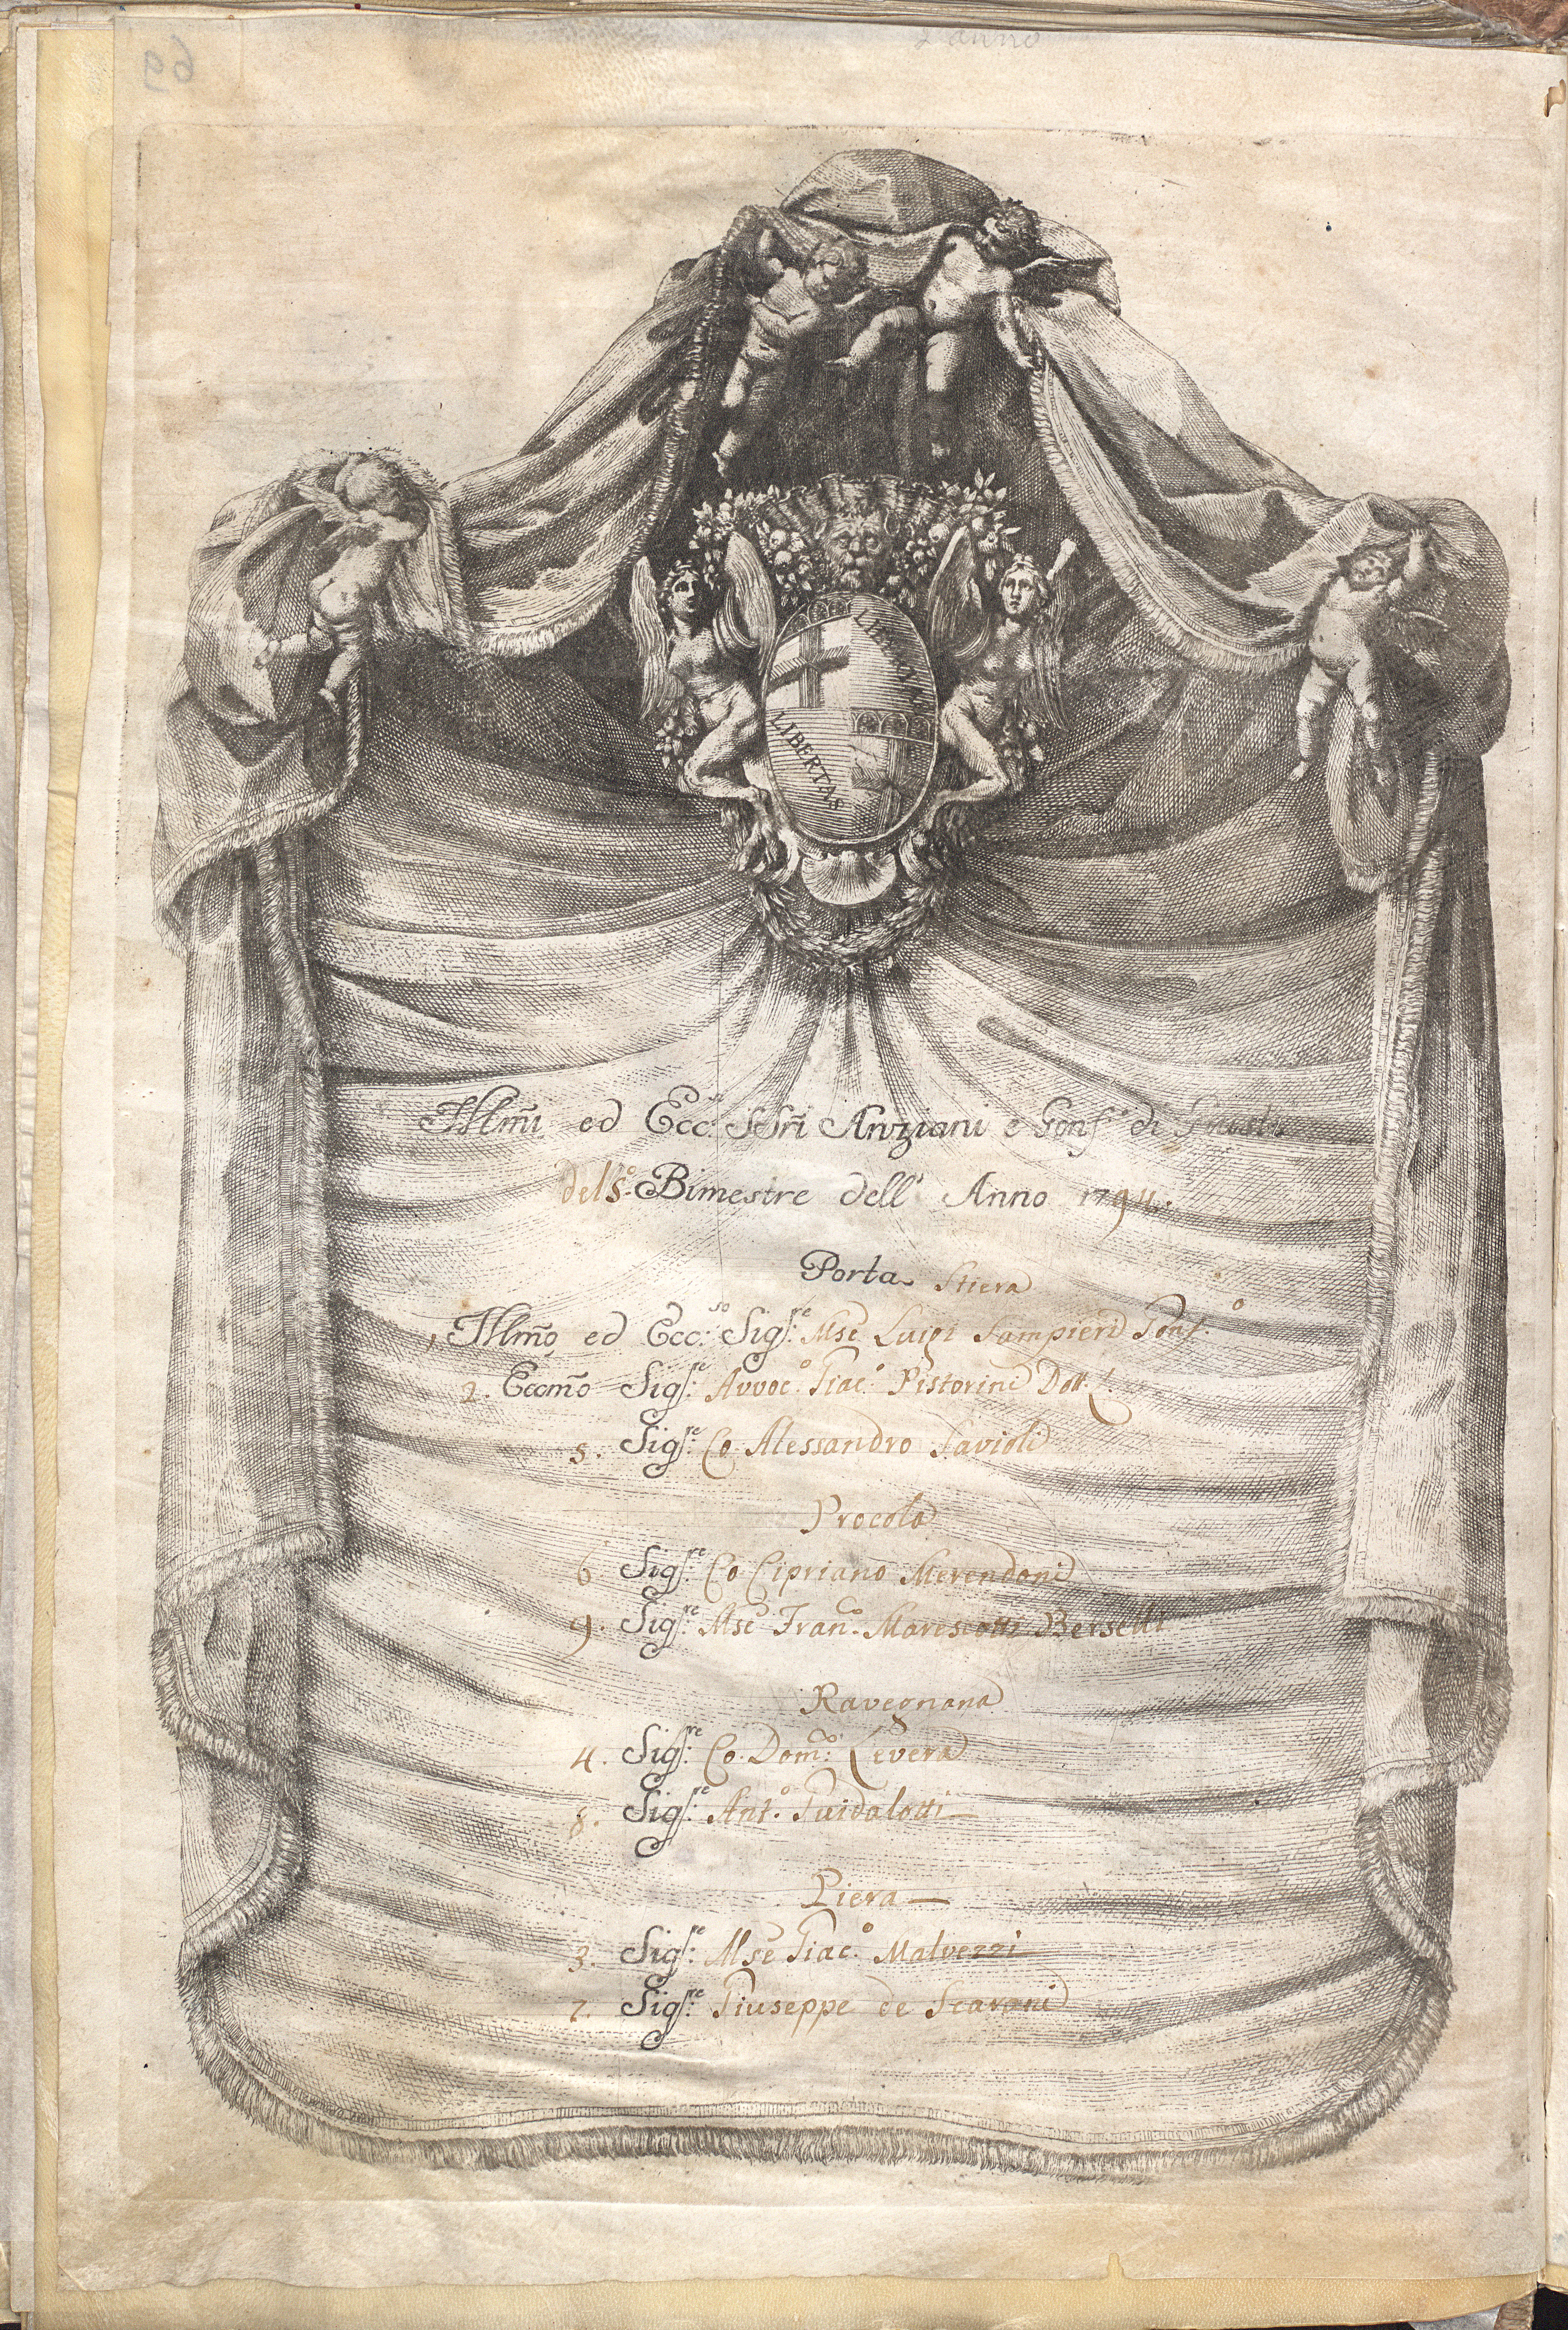 2 anno
69
LIBERTAS
LIBERTAS
Illm̃i ed Ecc.si SSri Anziani e Gonf.e di Giustizia
del 5.o Bimestre dell' Anno 1794.
Porta Stiera
1. Illm̃o ed Ecc.so Sig.re Mse Luigi Sampieri Gonf.o
2. Eccmõ Sig.re Avvoc.o Giac.o Pistorini Dott.
5. Sig.re Co. Alessandro Savioli
Procola
6. Sig.re Co. Cipriano Merendoni
9. Sig.re Mse Fran.co Marescotti Berselli
Ravegnana
4. Sig.re Co. Dom.co Levera
8. Sig.re Ant.o Guidalotti
Piera
3. Sig.re Mse Giac.o Malvezzi
7. Sig.re Giuseppe de Scarani